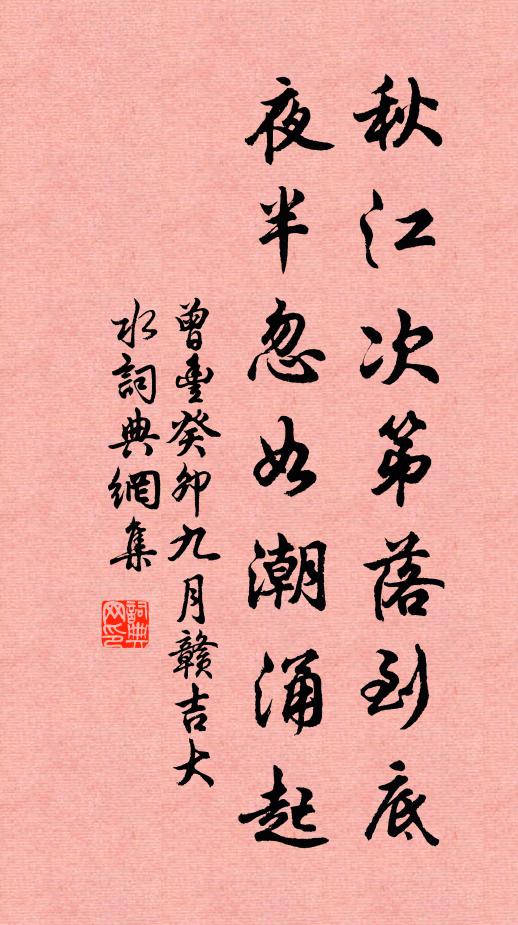 秋江次第落到底
夜半忽如潮涌起
曾豊癸卯九月贛吉大
水詞典網集
詞典
网印